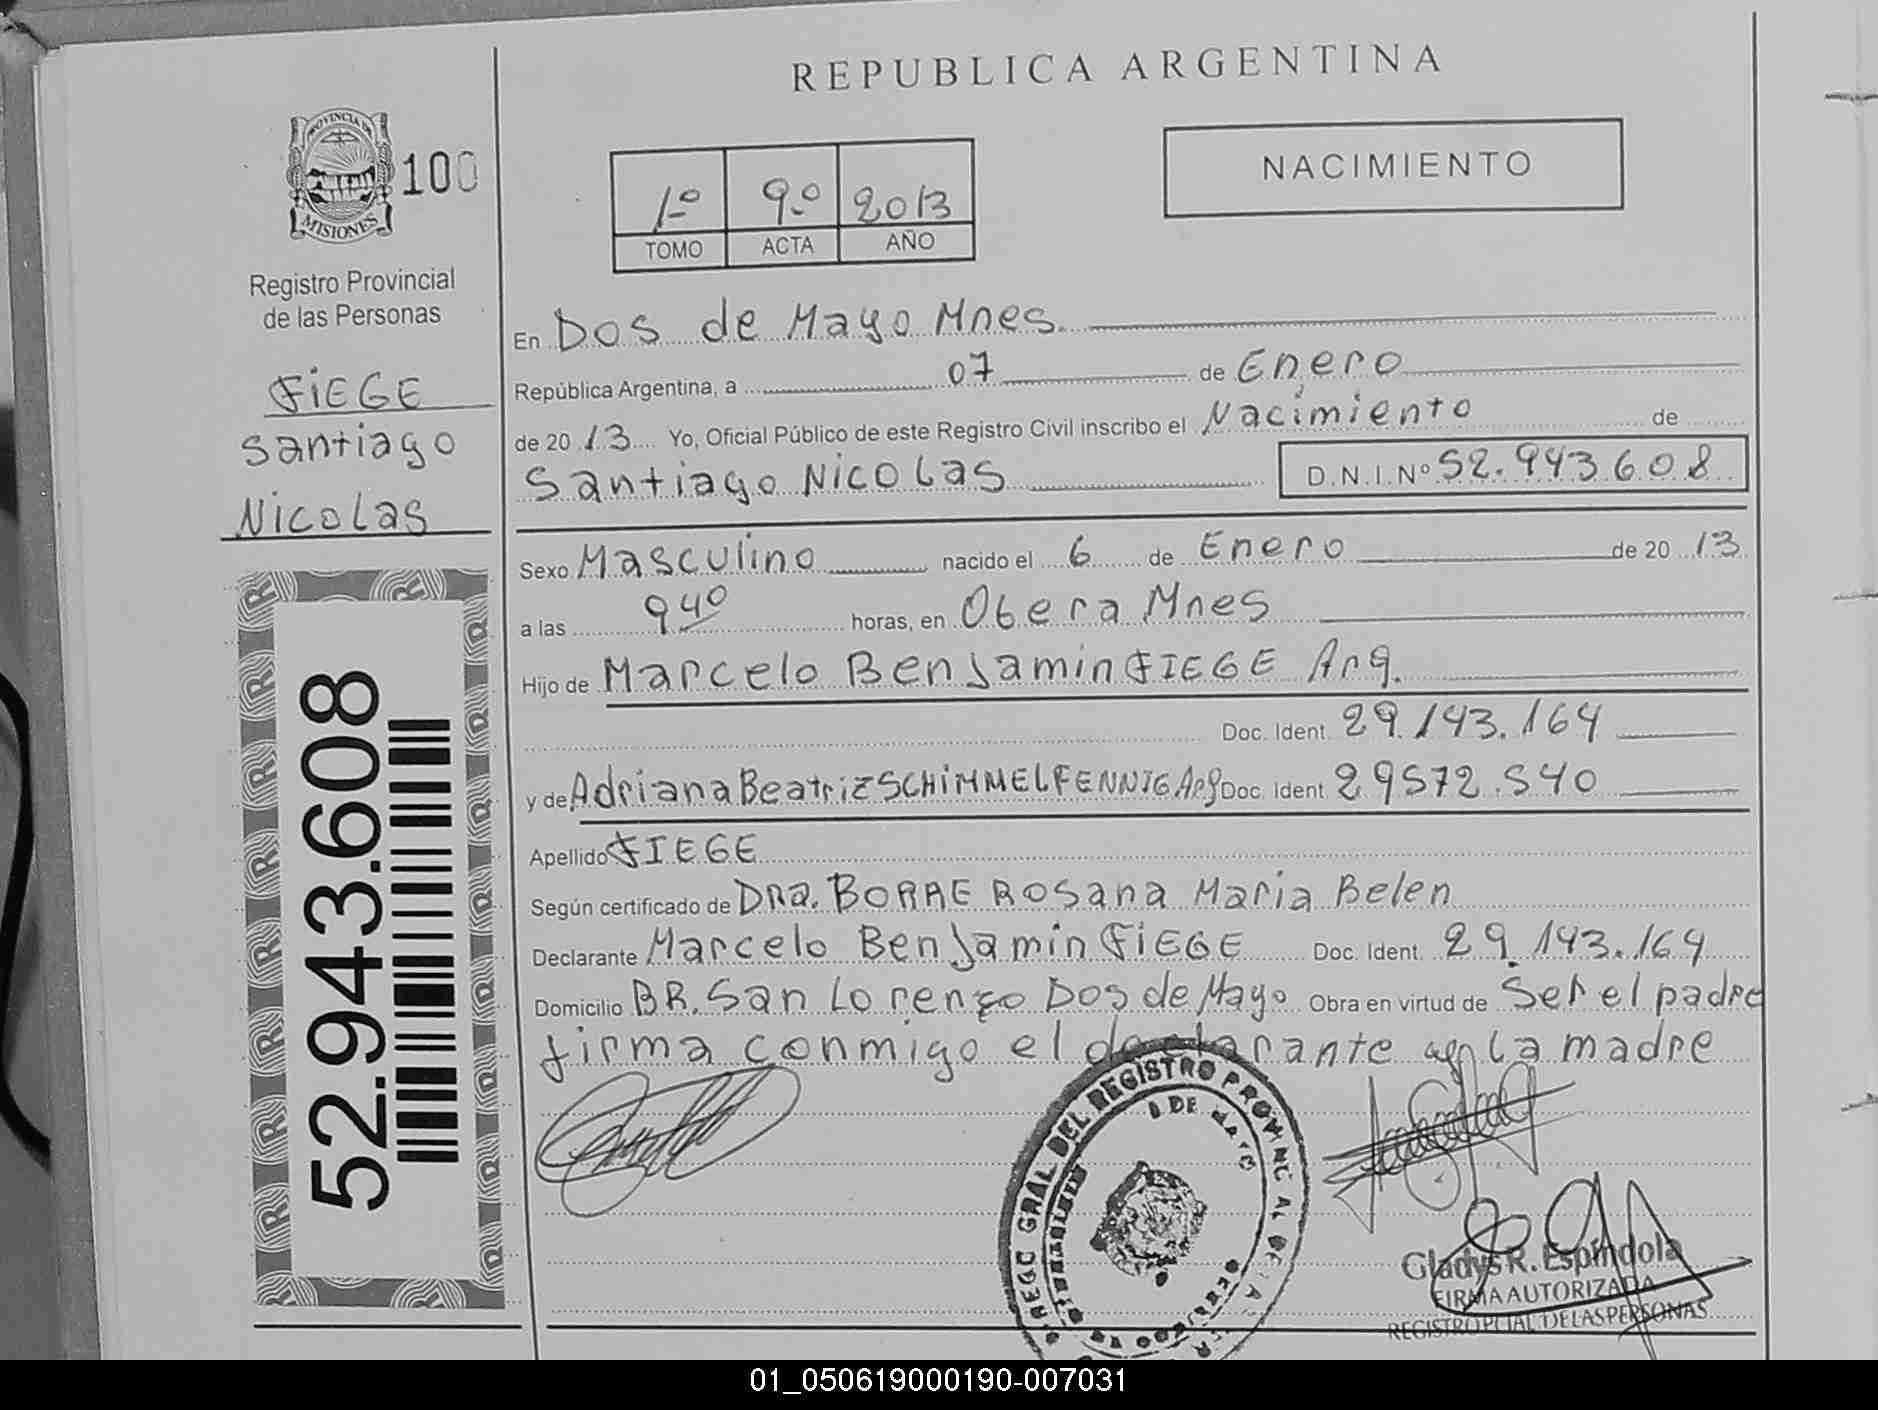 REPUBLICA ARGENTINA
PROVINCIA DE
MISIONES
100
NACIMIENTO
1-º 9-º 2013
TOMO ACTA AÑO
Registro Provincial
de las Personas
FiEGE
Santiago
Nicolas
52.943.608
En Dos de Mayo Mnes.
República Argentina, a 07 de Enero
de 2013 Yo, Oficial Público de este Registro Civil inscribo el Nacimiento de
Santiago NicoLas D.N.I.Nº 52.943.608
Sexo Masculino nacido el 6 de Enero de 2013
a las 9 40 horas, en Obera Mnes
Hijo de Marcelo Benjamin FIEGE Arg.
Doc. Ident. 29.143.164
y de Adriana Beatriz SCHiMMELFENNIG Arg Doc. Ident 29572.540
Apellido FIEGE
Según certificado de DRa. BORRE Rosana Maria Belen
Declarante Marcelo Benjamin FiEGE Doc. Ident. 29.143.164
Domicilio BR. San Lorenzo Dos de Mayo Obra en virtud de Ser el padre
firma conmigo el declarante y La madre
REGISTRO PROVINCIAL DE LA
GRAL DEL
DE MAYO
Gladys R. Espíndola
FIRMA AUTORIZADA
REGISTRO PCIAL DE LAS PERSONAS
01_050619000190-007031